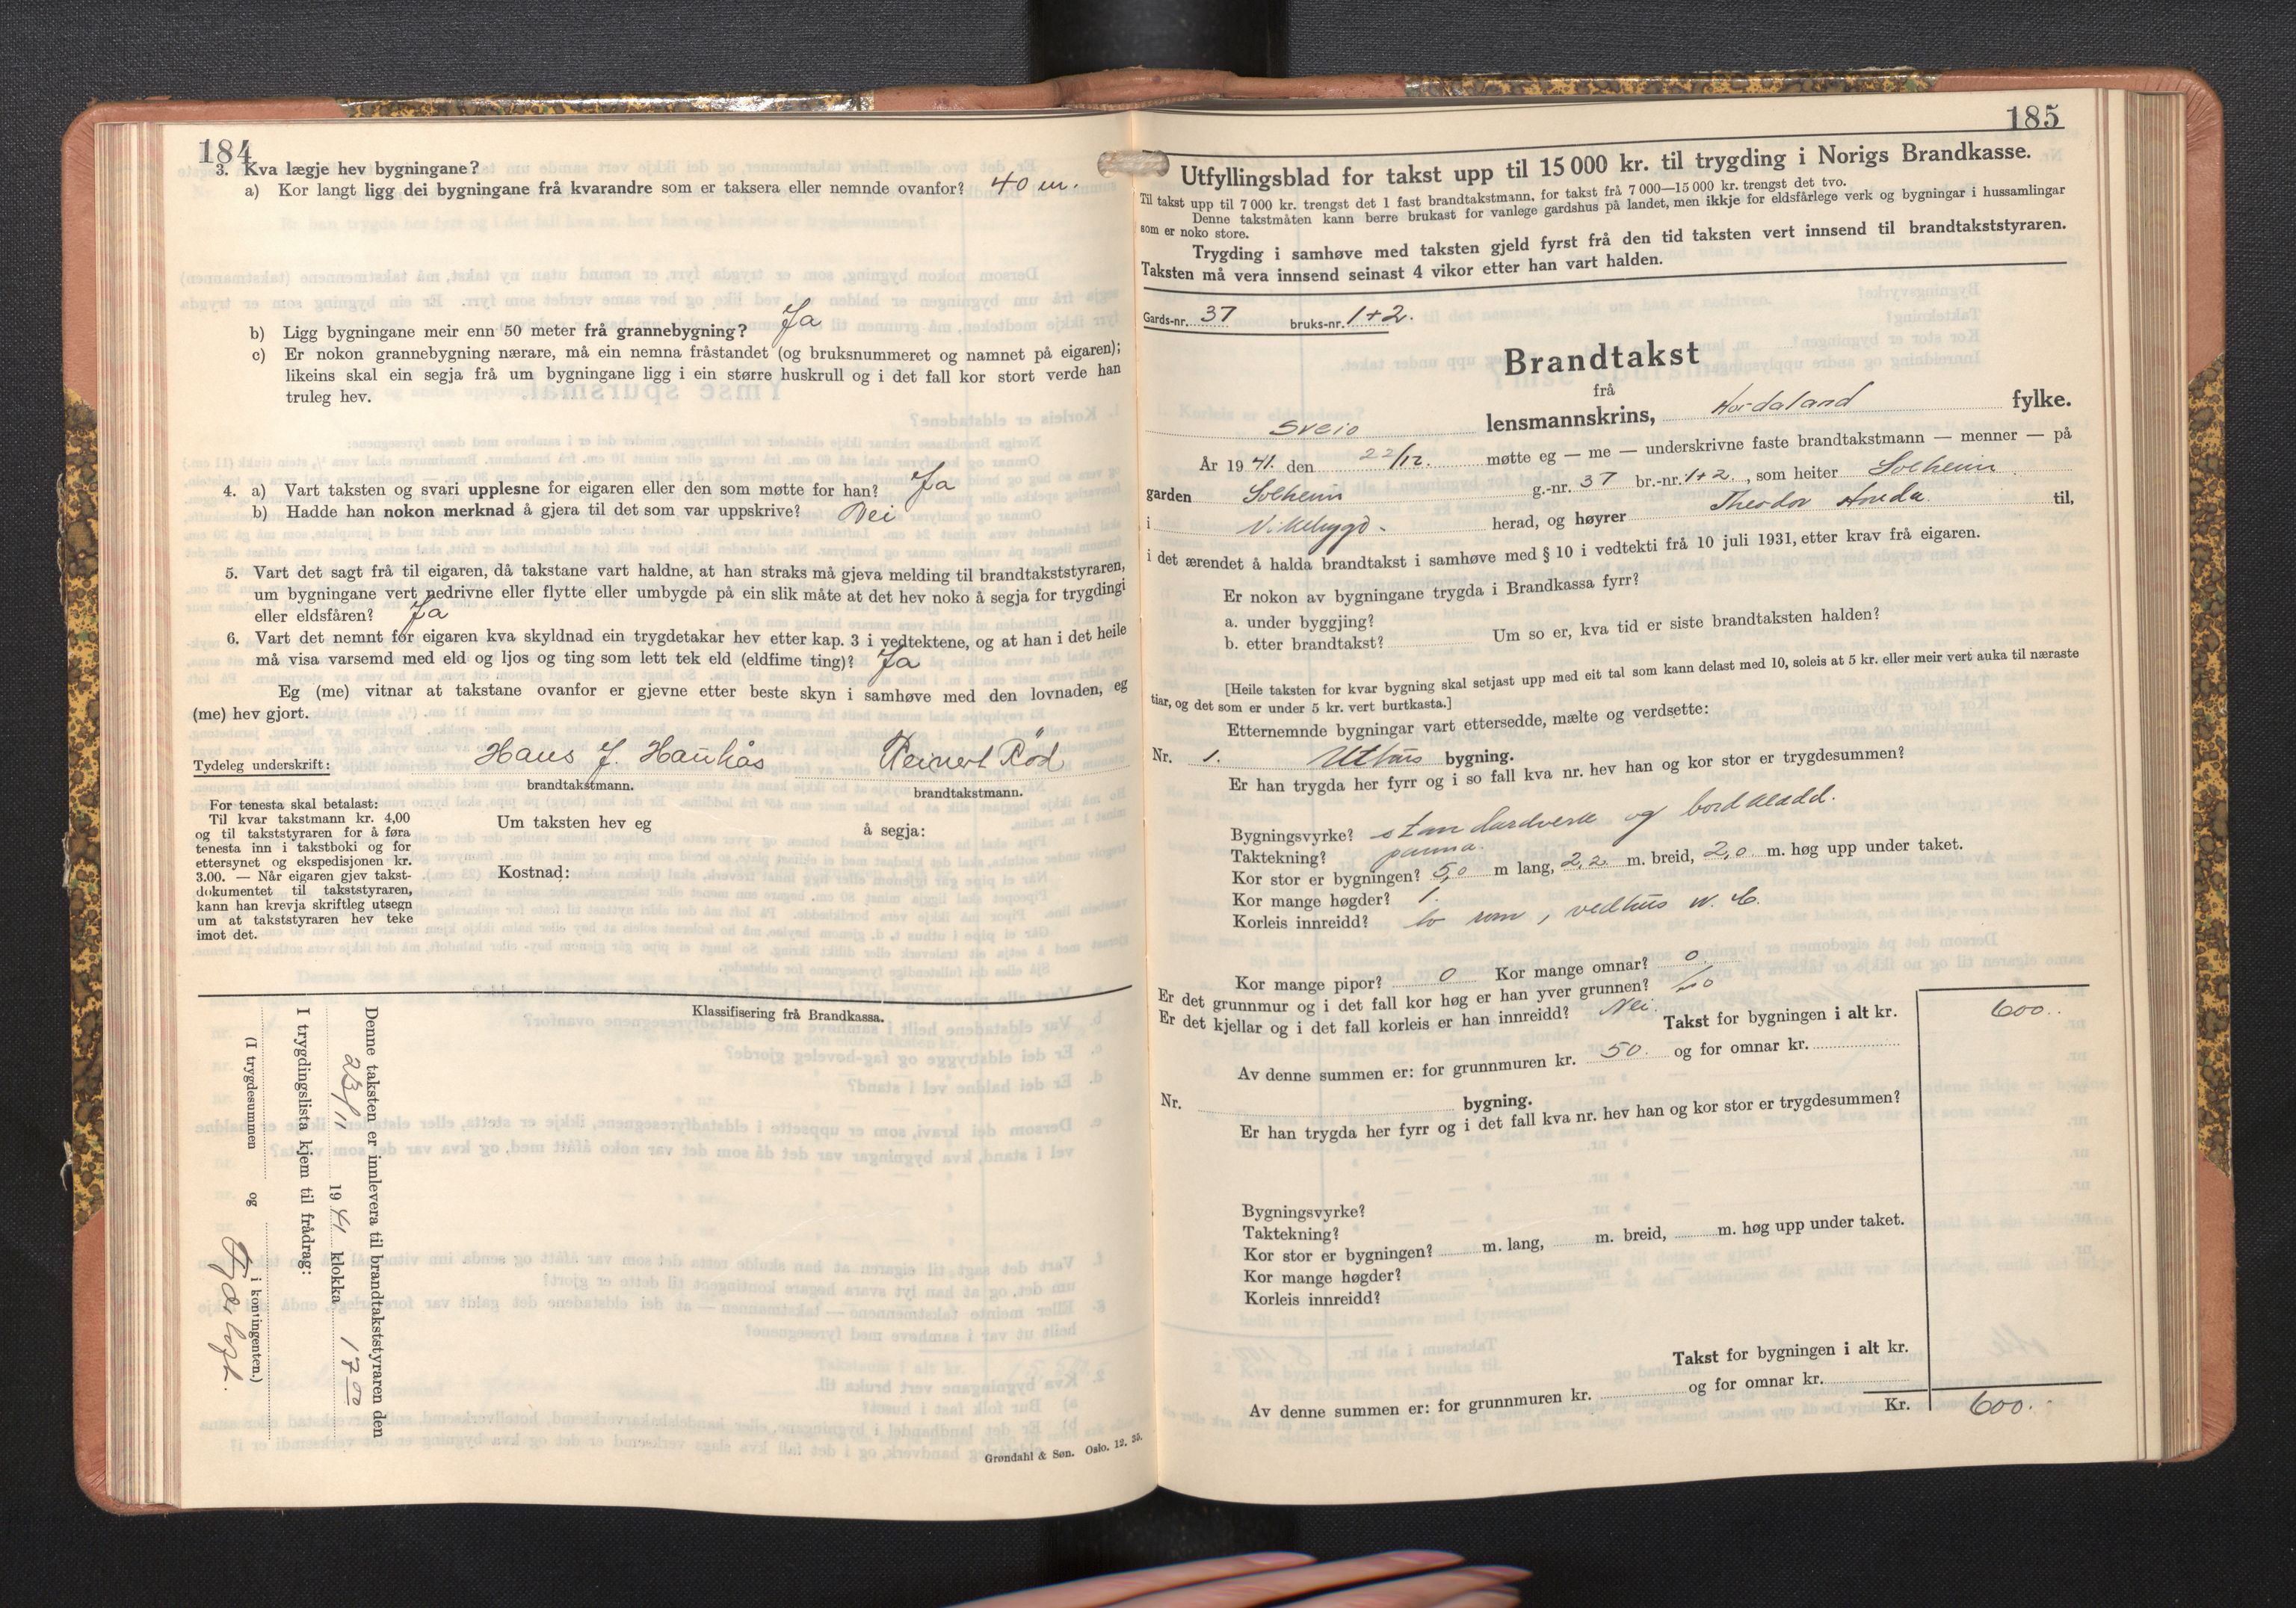 184
3. Kva lægje hev bygningane?
a) Kor langt ligg dei bygningane frå kvarandre som er taksera eller nemnde ovanfor? 40 m.
b) Ligg bygningane meir enn 50 meter frå grannebygning? Ja
c) Er nokon grannebygning nærare, må ein nemna fråstandet (og bruksnummeret og namnet på eigaren);
likeins skal ein segja frå um bygningane ligg i ein større huskrull og i det fall kor stort verde han
truleg hev.
4. a) Vart taksten og svari upplesne for eigaren eller den som møtte for han? Ja
b) Hadde han nokon merknad å gjera til det som var uppskrive? Nei
5. Vart det sagt frå til eigaren, då takstane vart haldne, at han straks må gjeva melding til brandtakststyraren,
um bygningane vert nedrivne eller flytte eller umbygde på ein slik måte at det hev noko å segja for trygdingi
eller eldsfåren? Ja
6. Vart det nemnt for eigaren kva skyldnad ein trygdetakar hev etter kap. 3 i vedtektene, og at han i det heile
må visa varsemd med eld og ljos og ting som lett tek eld (eldfime ting)? Ja
Eg (me) vitnar at takstane ovanfor er gjevne etter beste skyn i samhøve med den lovnaden, eg
(me) hev gjort.
Tydeleg underskrift: Hans J. Hauhås Reinert Röd
brandtakstmann. brandtakstmann.
For tenesta skal betalast:
Til kvar takstmann kr. 4,00
og til takststyraren for å føra
tenesta inn i takstboki og for
ettersynet og ekspedisjonen kr.
3.00. — Når eigaren gjev takst-
dokumentet til takststyraren,
kann han krevja skriftleg utsegn
um at takststyraren hev teke
imot det.
Um taksten hev eg å segja:
Kostnad:
Klassifisering frå Brandkassa.
Denne taksten er innlevera til brandtakststyraren den
23/11 1941 klokka 17 00
I trygdingslista kjem til frådrag:
(I trygdesummen og i kontingenten.)
Grøndahl & Søn. Oslo. 12. 35.
185
Utfyllingsblad for takst upp til 15 000 kr. til trygding i Norigs Brandkasse.
Til takst upp til 7 000 kr. trengst det 1 fast brandtakstmann, for takst frå 7 000—15 000 kr. trengst det tvo.
Denne takstmåten kann berre brukast for vanlege gardshus på landet, men ikkje for eldsfårlege verk og bygningar i hussamlingar
som er noko store.
Trygding i samhøve med taksten gjeld fyrst frå den tid taksten vert innsend til brandtakststyraren.
Taksten må vera innsend seinast 4 vikor etter han vart halden.
Gards-nr. 37 bruks-nr. 1+2.
Brandtakst
frå
Sveio lensmannskrins, Hordaland fylke.
År 1941. den 22/12. møtte eg — me — underskrivne faste brandtakstmann — menner — på
garden Solheim g.-nr. 37 br.-nr. 1+2., som heiter Solheim
i Vikebygd. herad, og høyrer Theodor til,
i det ærendet å halda brandtakst i samhøve med § 10 i vedtekti frå 10 juli 1931, etter krav frå eigaren.
Er nokon av bygningane trygda i Brandkassa fyrr?
a. under byggjing?
b. etter brandtakst? Um so er, kva tid er siste brandtaksten halden?
[Heile taksten for kvar bygning skal setjast upp med eit tal som kann delast med 10, soleis at 5 kr. eller meir vert auka til næraste
tiar, og det som er under 5 kr. vert burtkasta.]
Etternemnde bygningar vart ettersedde, mælte og verdsette:
Nr. 1. Uthus bygning.
Er han trygda her fyrr og i so fall kva nr. hev han og kor stor er trygdesummen?
Bygningsvyrke? standardverk og bordkledd.
Taktekning? panna.
Kor stor er bygningen? 5,0 m lang, 2,2 m. breid, 2,0 m. høg upp under taket.
Kor mange høgder? 1.
Korleis innreidd? to rom, vedhus W. C.
Kor mange pipor? 0 Kor mange omnar? 0.
Er det grunnmur og i det fall kor høg er han yver grunnen?
Er det kjellar og i det fall korleis er han innreidd? Nei.
Takst for bygningen i alt kr. 600.
Av denne summen er: for grunnmuren kr. 50. og for omnar kr.
Nr. bygning.
Er han trygda her fyrr og i det fall kva nr. hev han og kor stor er trygdesummen?
Bygningsvyrke?
Taktekning?
Kor stor er bygningen? m. lang, m. breid, m. høg upp under taket.
Kor mange høgder?
Korleis innreidd?
Takst for bygningen i alt kr.
Av denne summen er: for grunnmuren kr. og for omnar kr.
Kr. 600.